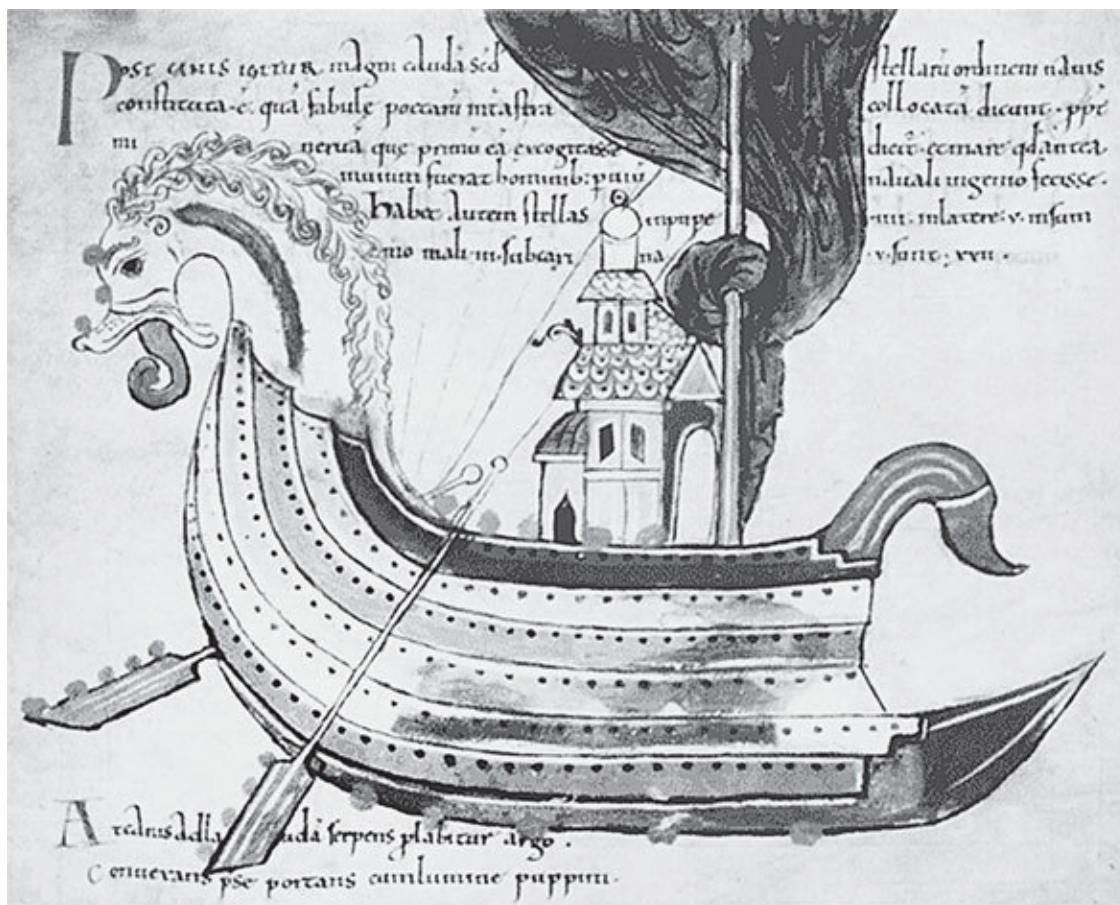 Post canis igitur magni caudā sed stellarū ordinem nauis
constituta · ē · quā fabule poetarū int astra collocatā dicunt · ppt
mineruā que primū eā excogitasse dicit · et mare qđ antea
inuium fuerat hominib: puiū nauali ingenio fecisse ·
Habet autem stellas in pupe · iiii · in latere · v · in sum
mo mali · iii · sub carina · v · sunt · xxii ·
serpens plabitur argo ·
Conuexans pse portans cum lumine puppim ·